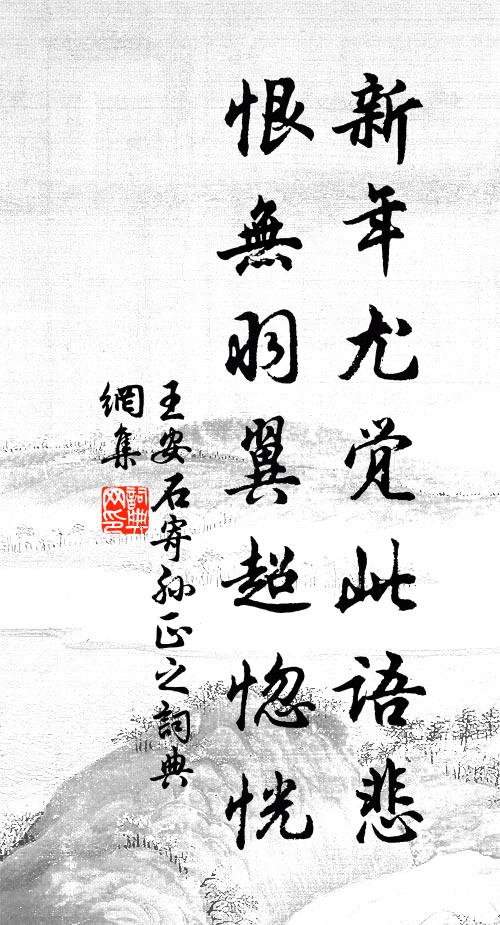 新年尤觉此语悲
恨無羽翼超惚恍
王安石寄孙正之詞典
網集
詞典
网印